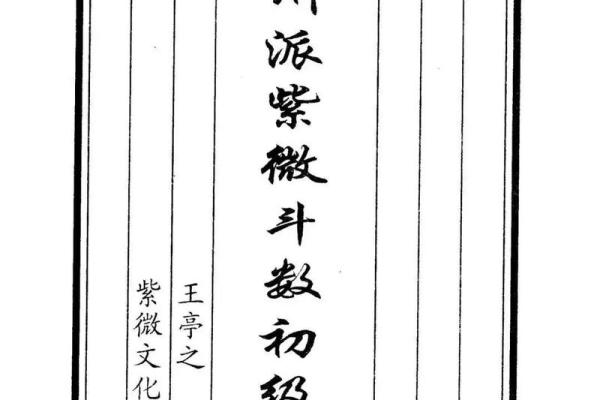 派紫微斗数初级
王亭之
紫微文化